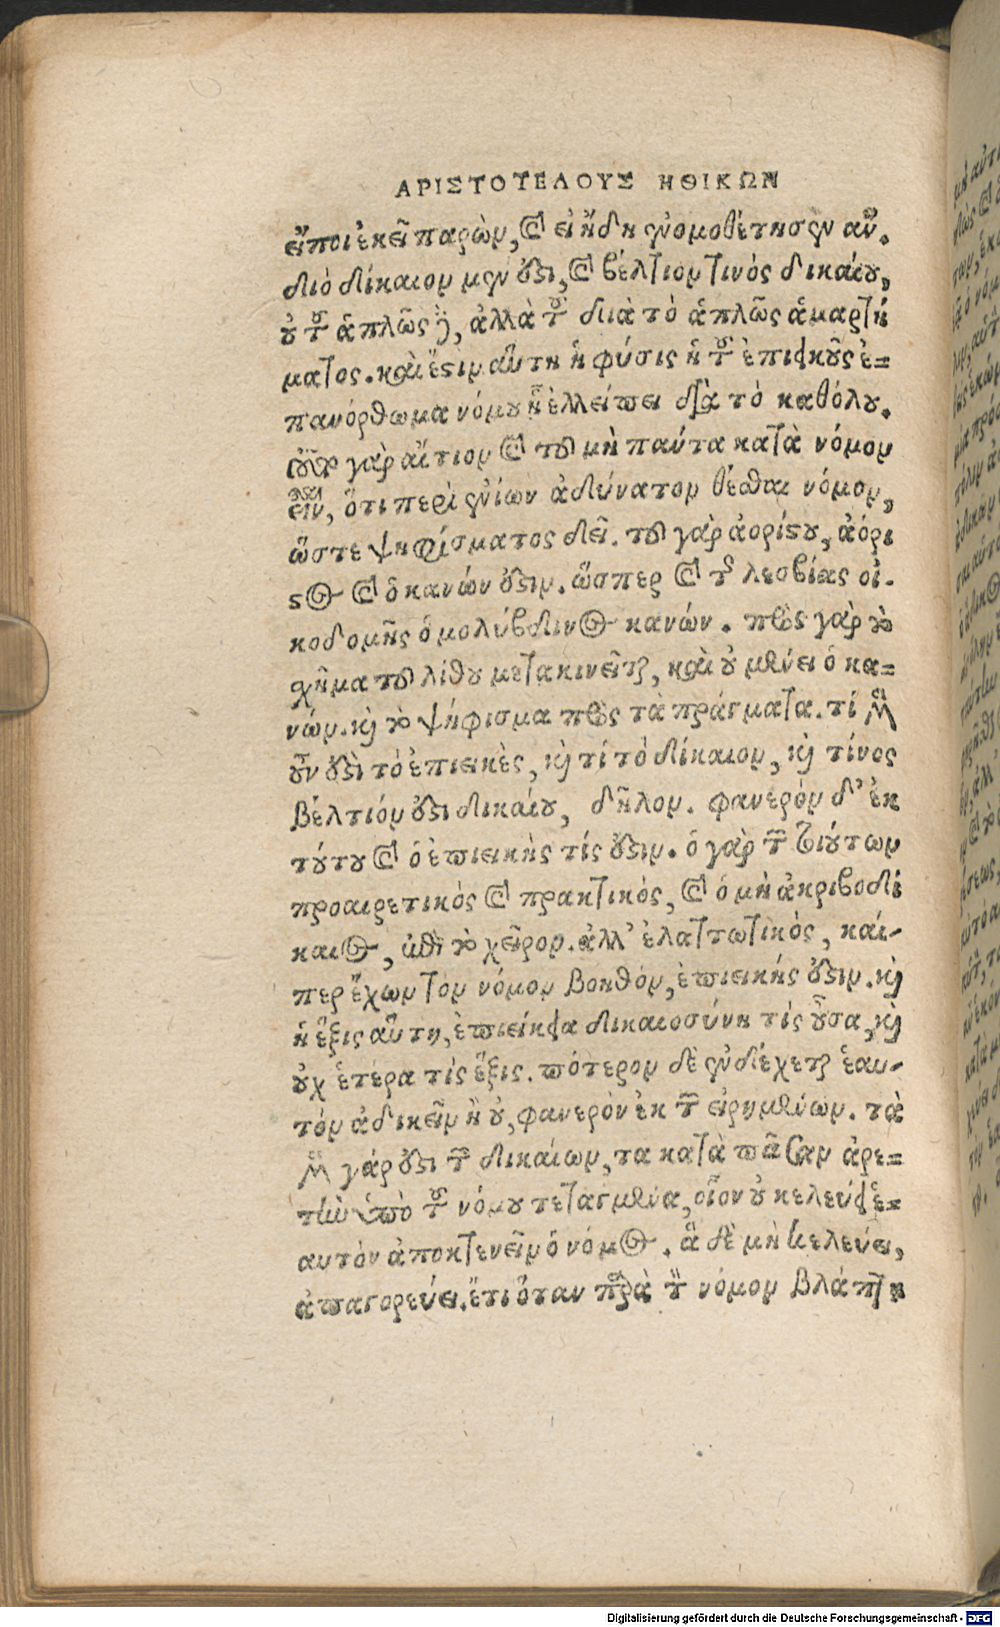 ΑΡΙΣΤΟΤΕΛΟΥΣ ΗΘΙΚΩΝ
εἴποι ἐκεῖ παρὼν, καὶ εἰ ἤδη ἐνομοθέτησεν ἄν.
διὸ δίκαιον μὲν ὅϛι, καὶ βέλτιον τινὸς δικαίου,
οὐ τοῦ ἁπλῶς δὲ, ἀλλὰ τοῦ διὰ τὸ ἁπλῶς ἁμαρτή
ματος. καὶ ἔϛιν αὕτη ἡ φύσις ἡ τοῦ ἐπιεικοῦς ἐ=
πανόρθωμα νόμου ᾗ ἐλλείπει διὰ τὸ καθόλου.
τοῦτο γὰρ αἴτιον καὶ τοῦ μὴ πάντα κατὰ νόμον
εἶναι, ὅτι περὶ ἐνίων ἀδύνατον θέσθαι νόμον,
ὥστε ψηφίσματος δεῖ. τοῦ γὰρ ἀορίϛου, ἀόρι
ϛος καὶ ὁ κανών ὅϛιν. ὥσπερ καὶ τῆς λεσβίας οἰ-
κοδομῆς ὁ μολύβδινος κανών. πρὸς γὰρ τὸ
σχῆμα τοῦ λίθου μετακινεῖται, καὶ οὐ μένει ὁ κα=
νών. καὶ τὸ ψήφισμα πρὸς τὰ πράγματα. τί μὲν
οὖν ὅϛὶ τὸ ἐπιεικὲς, καὶ τί τὸ δίκαιον, καὶ τίνος
βέλτιόν ὅϛι δικαίου, δῆλον. φανερὸν δ' ἐκ
τούτου καὶ ὁ ἐπιεικὴς τίς ὅϛιν. ὁ γὰρ τῶν τοιούτων
προαιρετικὸς καὶ πρακτικὸς, καὶ ὁ μὴ ἀκριβοδί
καιος, ἐπὶ τὸ χεῖρον. ἀλλ' ἐλαττωτικὸς, καί-
περ ἔχων τὸν νόμον βοηθὸν, ἐπιεικής ὅϛιν. καὶ
ἡ ἕξις αὕτη, ἐπιείκεια δικαιοσύνη τίς οὖσα, καὶ
οὐχ ἑτέρα τίς ἕξις. πότερον δὲ ἐνδέχεται ἑαυ-
τὸν ἀδικεῖν ἢ οὐ, φανερὸν ἐκ τῶν εἰρημένων. τὰ
μὲν γάρ ὅϛι τῶν δικαίων, τα κατὰ πᾶσαν ἀρε=
τὴν ὑπὸ τοῦ νόμου τεταγμένα, οἷον οὐ κελεύει ἑ=
αυτὸν ἀποκτενεῖν ὁ νόμος. ἃ δὲ μὴ κελεύει,
ἀπαγορεύει. ἔτι ὅταν παρὰ τὸν νόμον βλάπτῃ